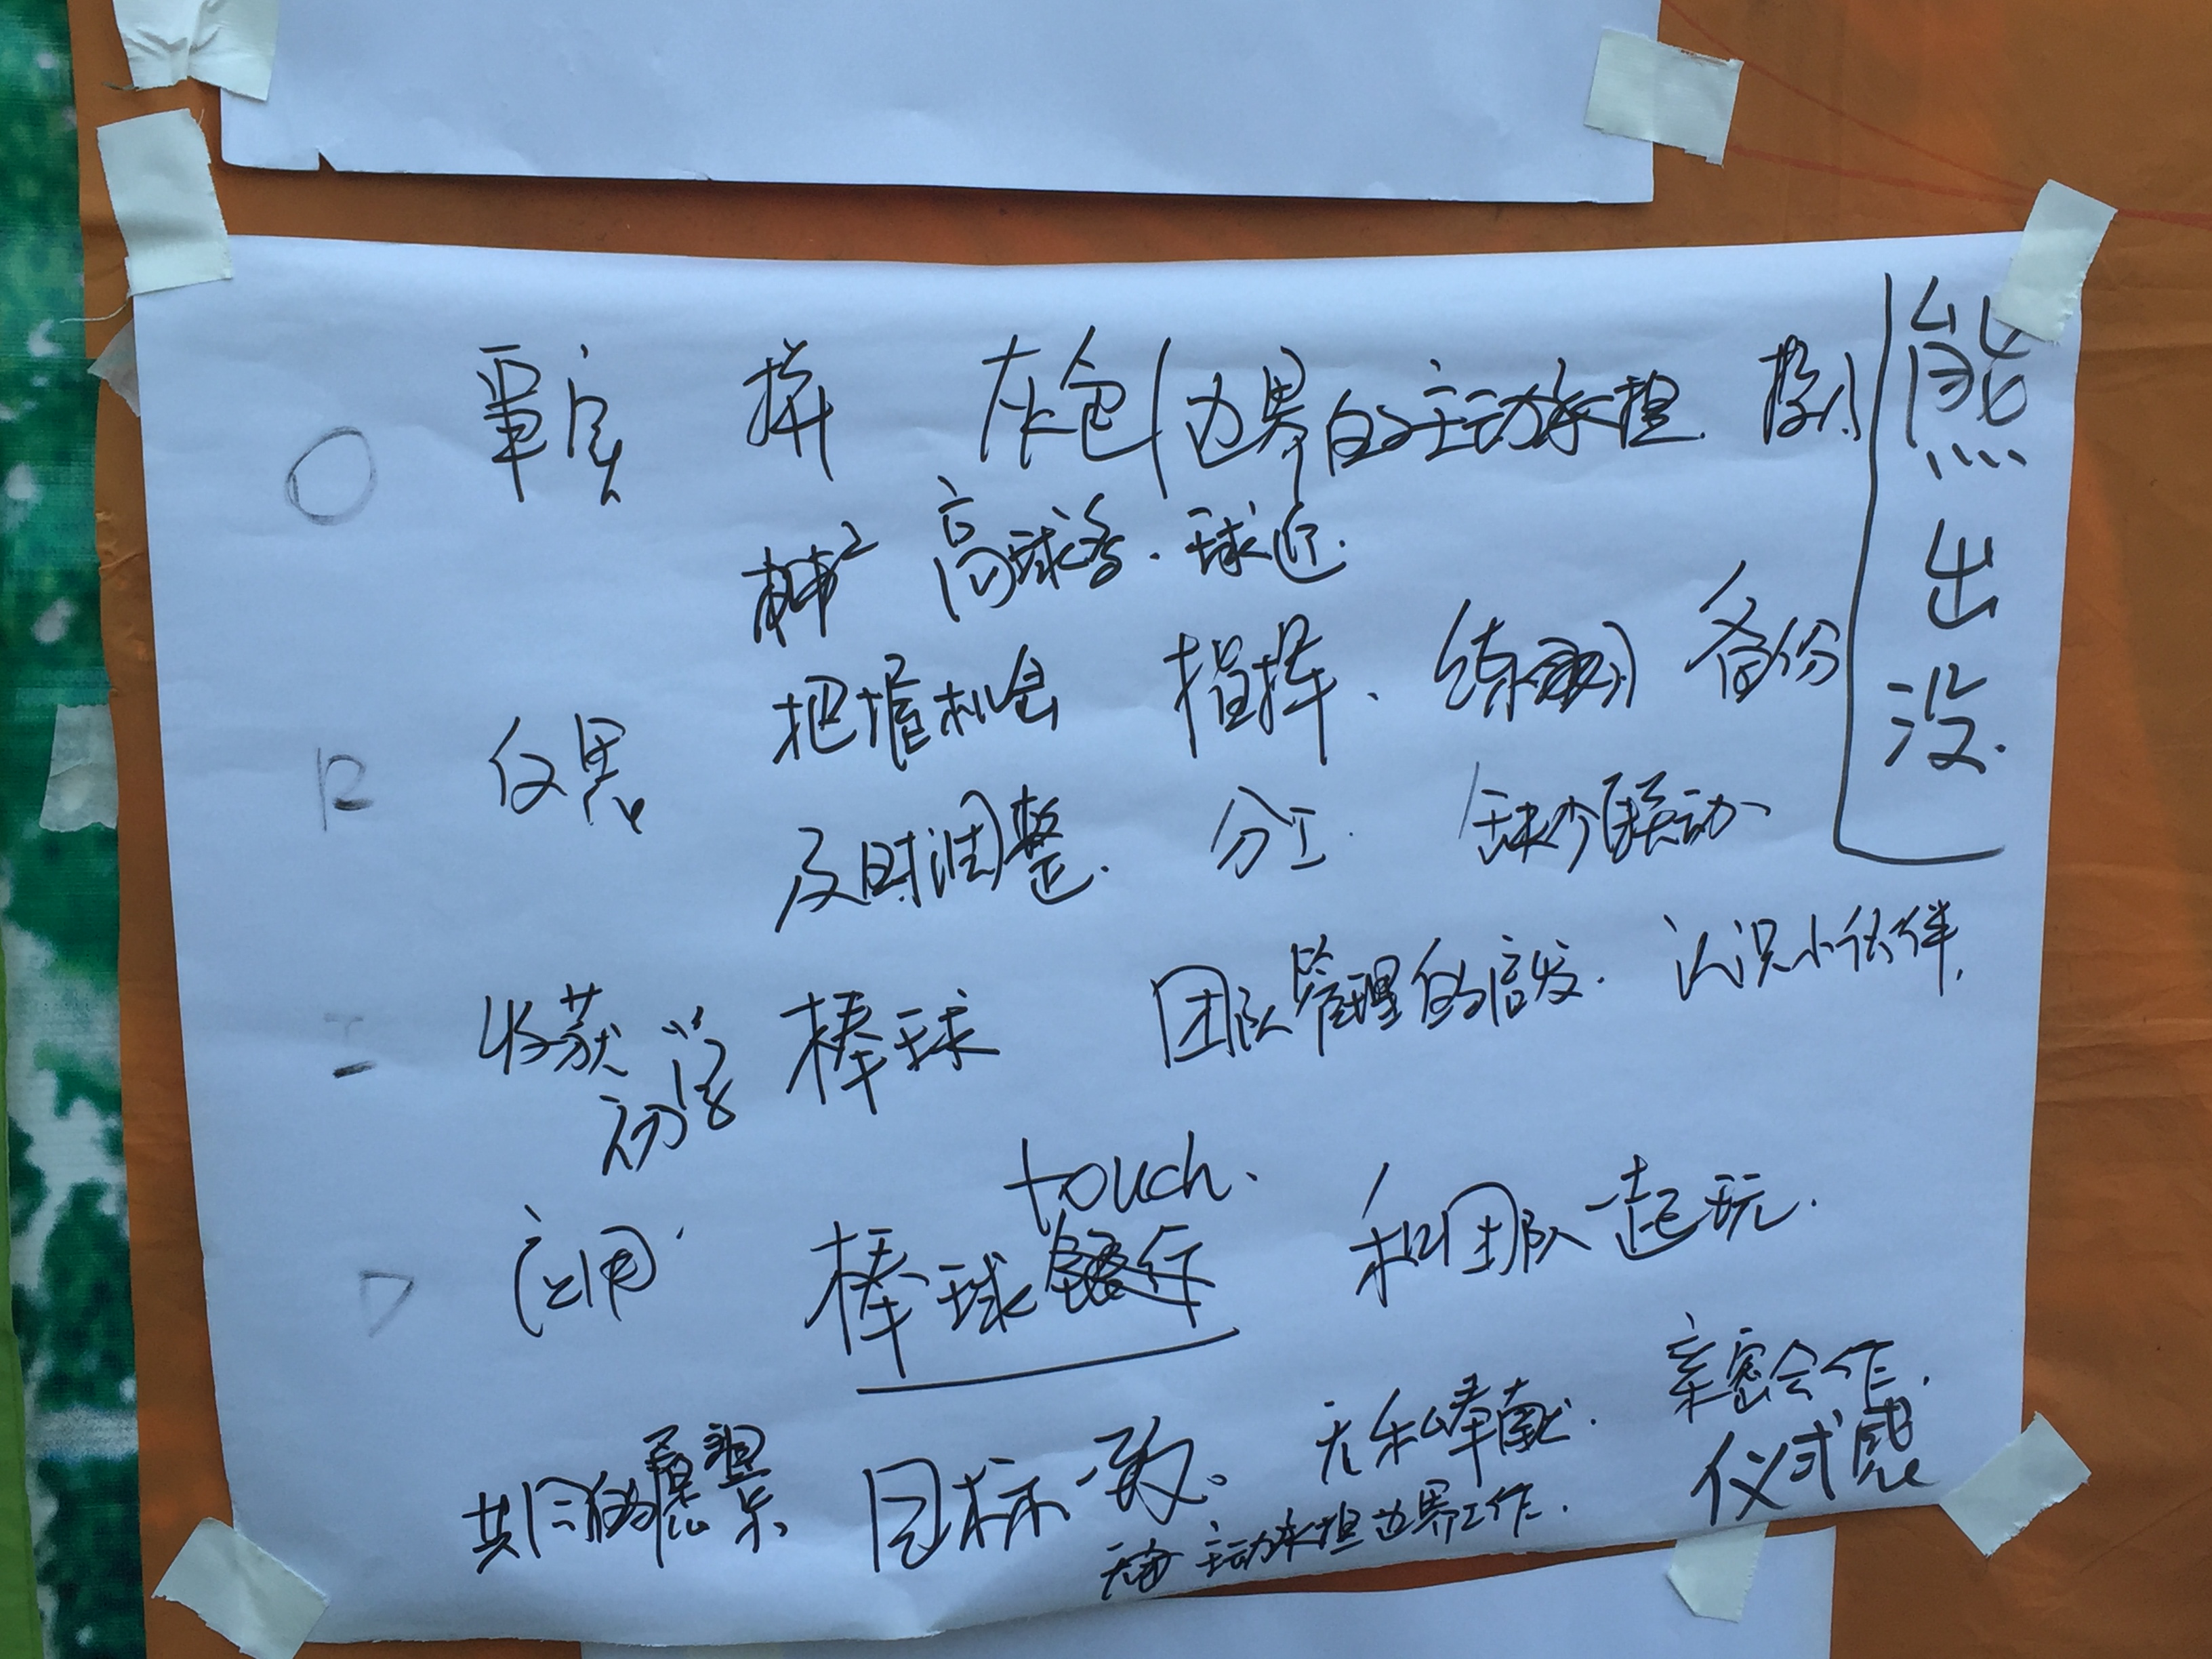 熊出没
O 事实 拼 灰色/边界的主动承担
高球多.球近.
把握机会 指挥、备份
R 反思
及时调整. 分工. 缺少联动
I 收获 棒球 团队管理的启发. 认识小伙伴,
初学
touch.
D 应用 棒球 和团队一起玩.
共同的愿景 目标一致。 无私奉献. 亲密合作.
主动承担边界工作. 仪式感